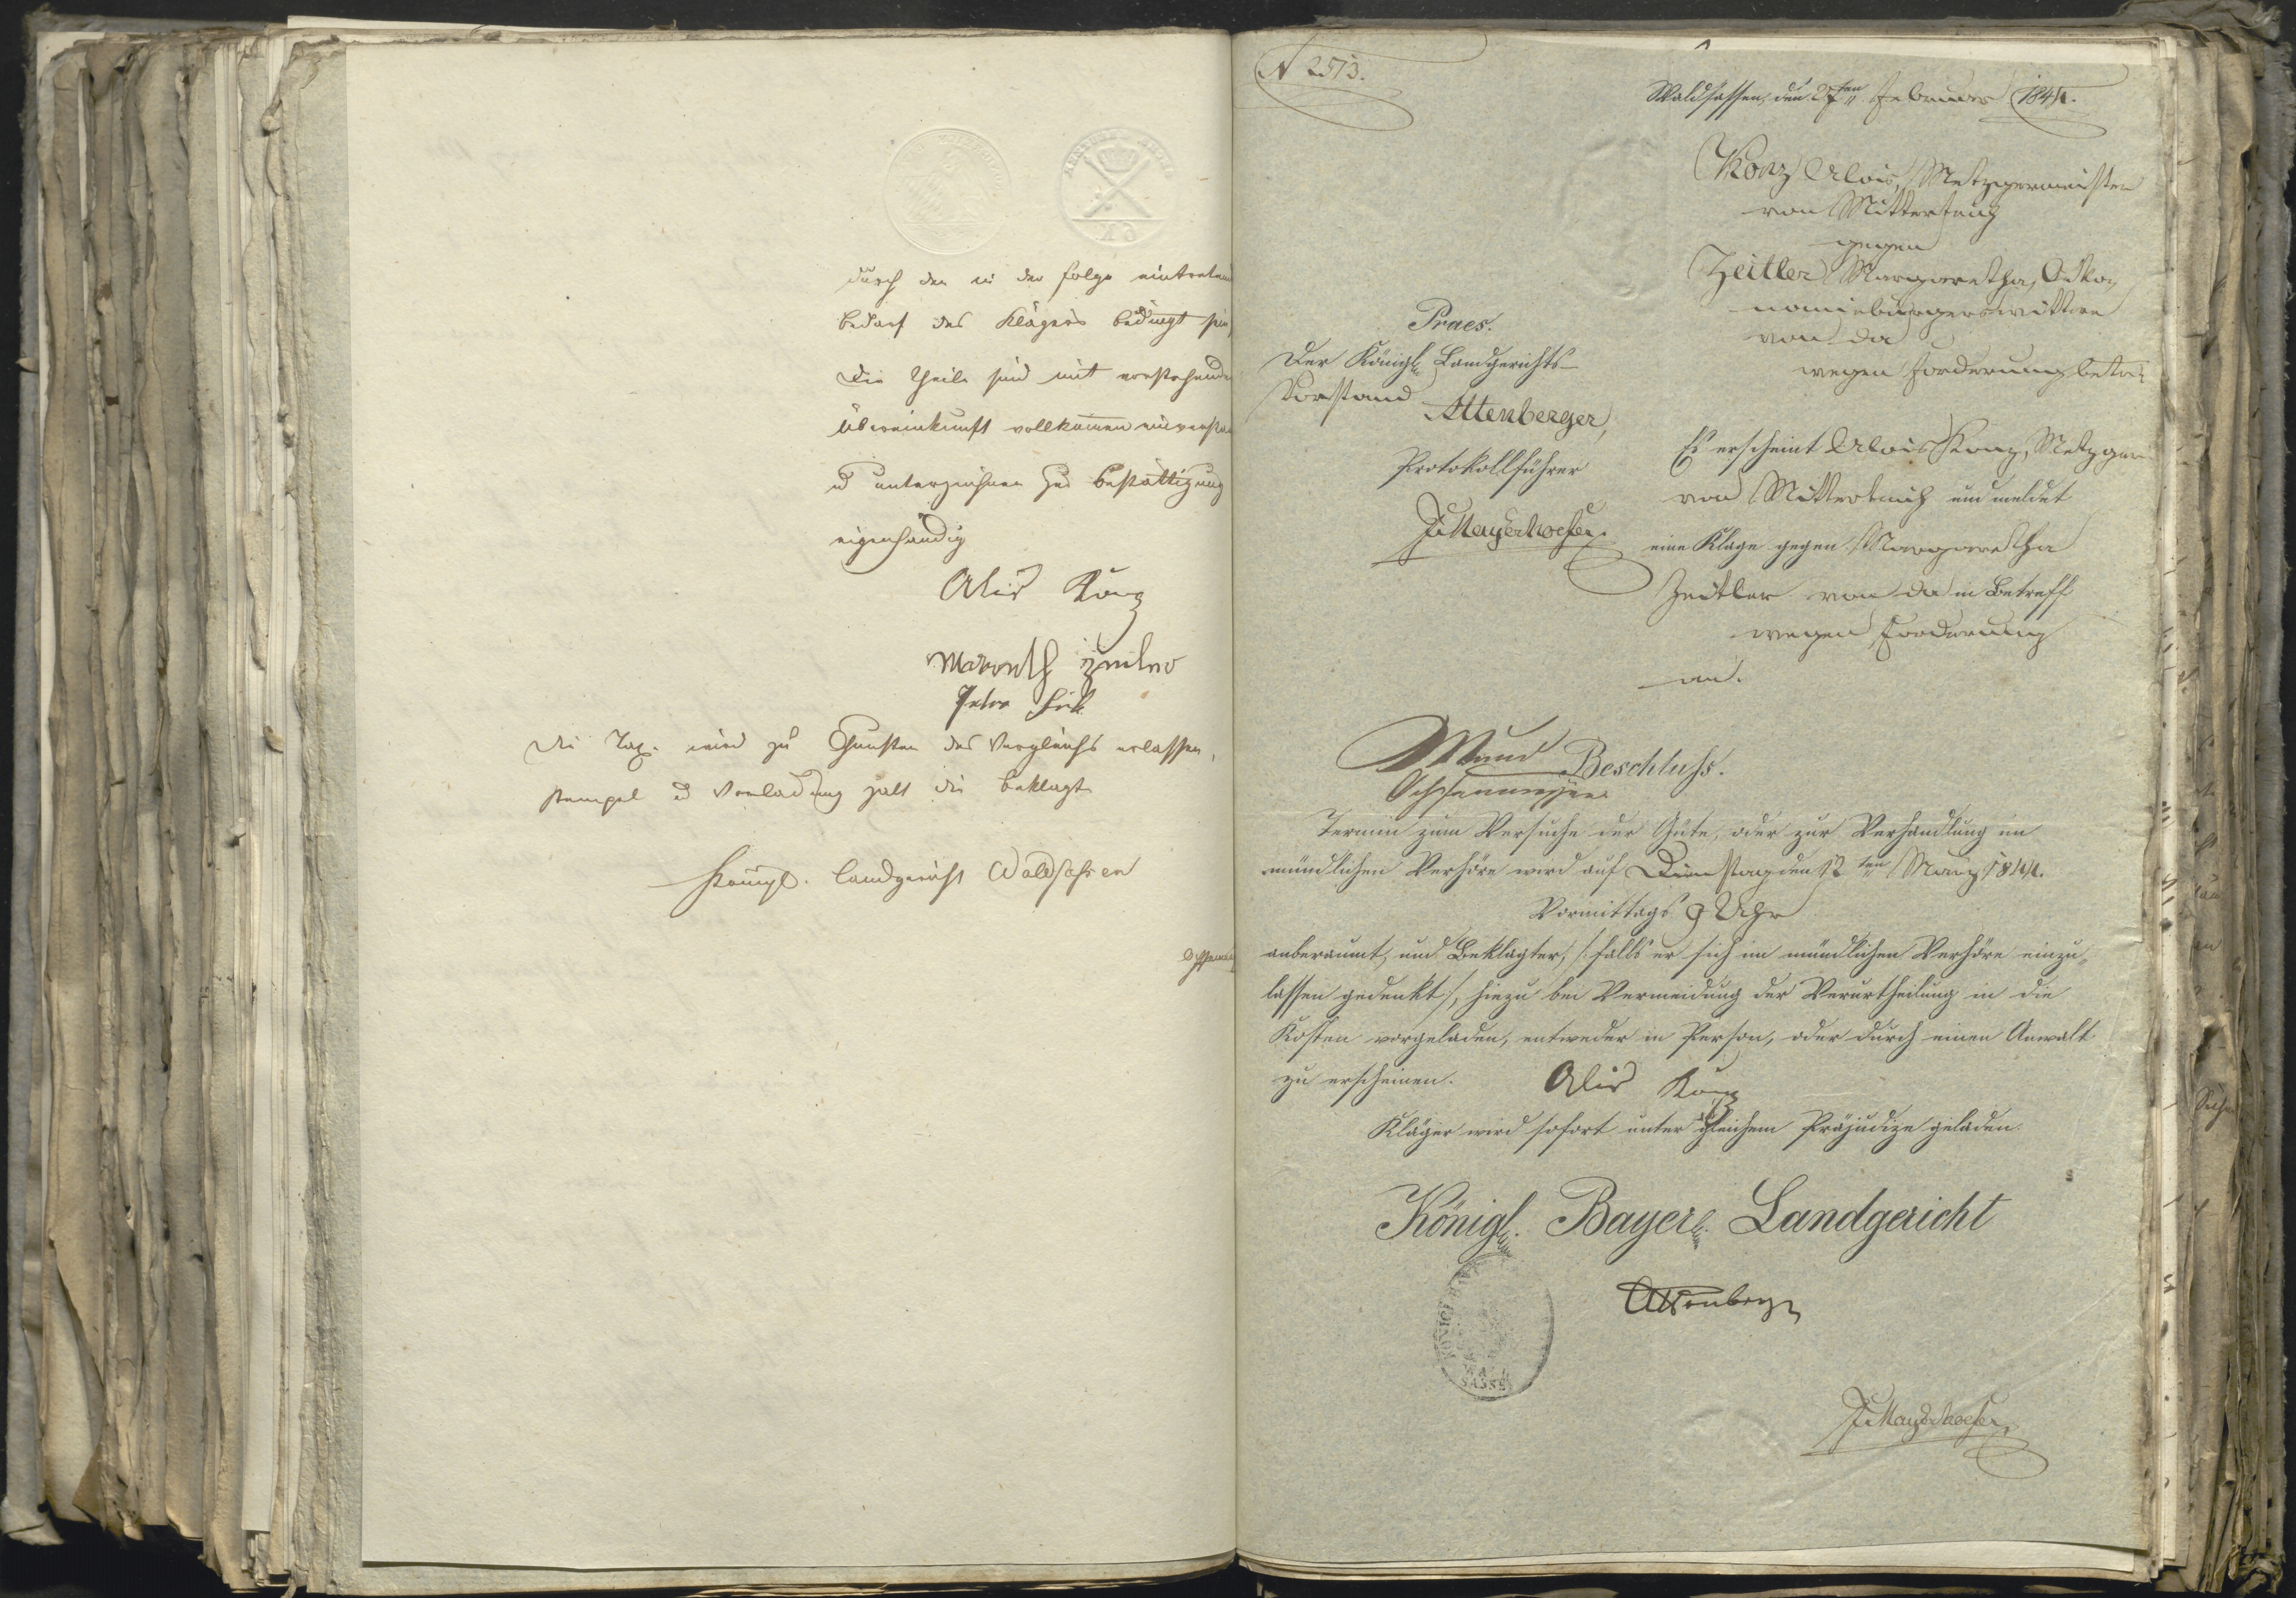 durch den in der Folge eintreten
Bedarf des Klägers bedingt sein
Die Theile sind mit vorstehender
Übereinkunft vollkommen einversta
u unterzeichnen zur Bestättigung
eigenhändig
Alois Konz
Margreth Zeitler
Peter
Die Tax. wird zu Gunsten des Vergleichs erlassen,
Stempel u Vorladung zalt die Beklagte
Königl. Landgericht Waldsassen
N 2513.
Waldsassen, den 27ten Februar 1844.
Konz Alois, Metzgermeister
von Mitterteich
gegen
Zeitler Margaretha, Oeko,
nomiebürgerswittwe
von da
wegen Forderung betr.
Praes.
Der Königl. Landgerichts-
Vorstand
Attenberger,
Protokollführer
Mayerhoefer.
Es erscheint Alois Konz, Metzger
von Mitterteich und meldet
eine Klage gegen Margaretha
Zeitler von da in Betreff
wegen Forderung
an.
Beschluss.
Termin zum Versuche der Güte, oder zur Verhandlung im
mündlichen Verhöre wird auf Dienstag den 12ten März 1844.
Vormittags 9 Uhr
anberaumt, und Beklagter, /: falls er sich im mündlichen Verhöre einzu-
lassen gedenkt :/, hiezu bei Vermeidung der Verurtheilung in die
Kosten vorgeladen, entweder in Person, oder durch einen Anwalt
zu erscheinen.
Alois Konz
Kläger wird sofort unter gleichem Präjudize geladen.
Königl. Bayer. Landgericht
Attenberger
Mayerhoefer